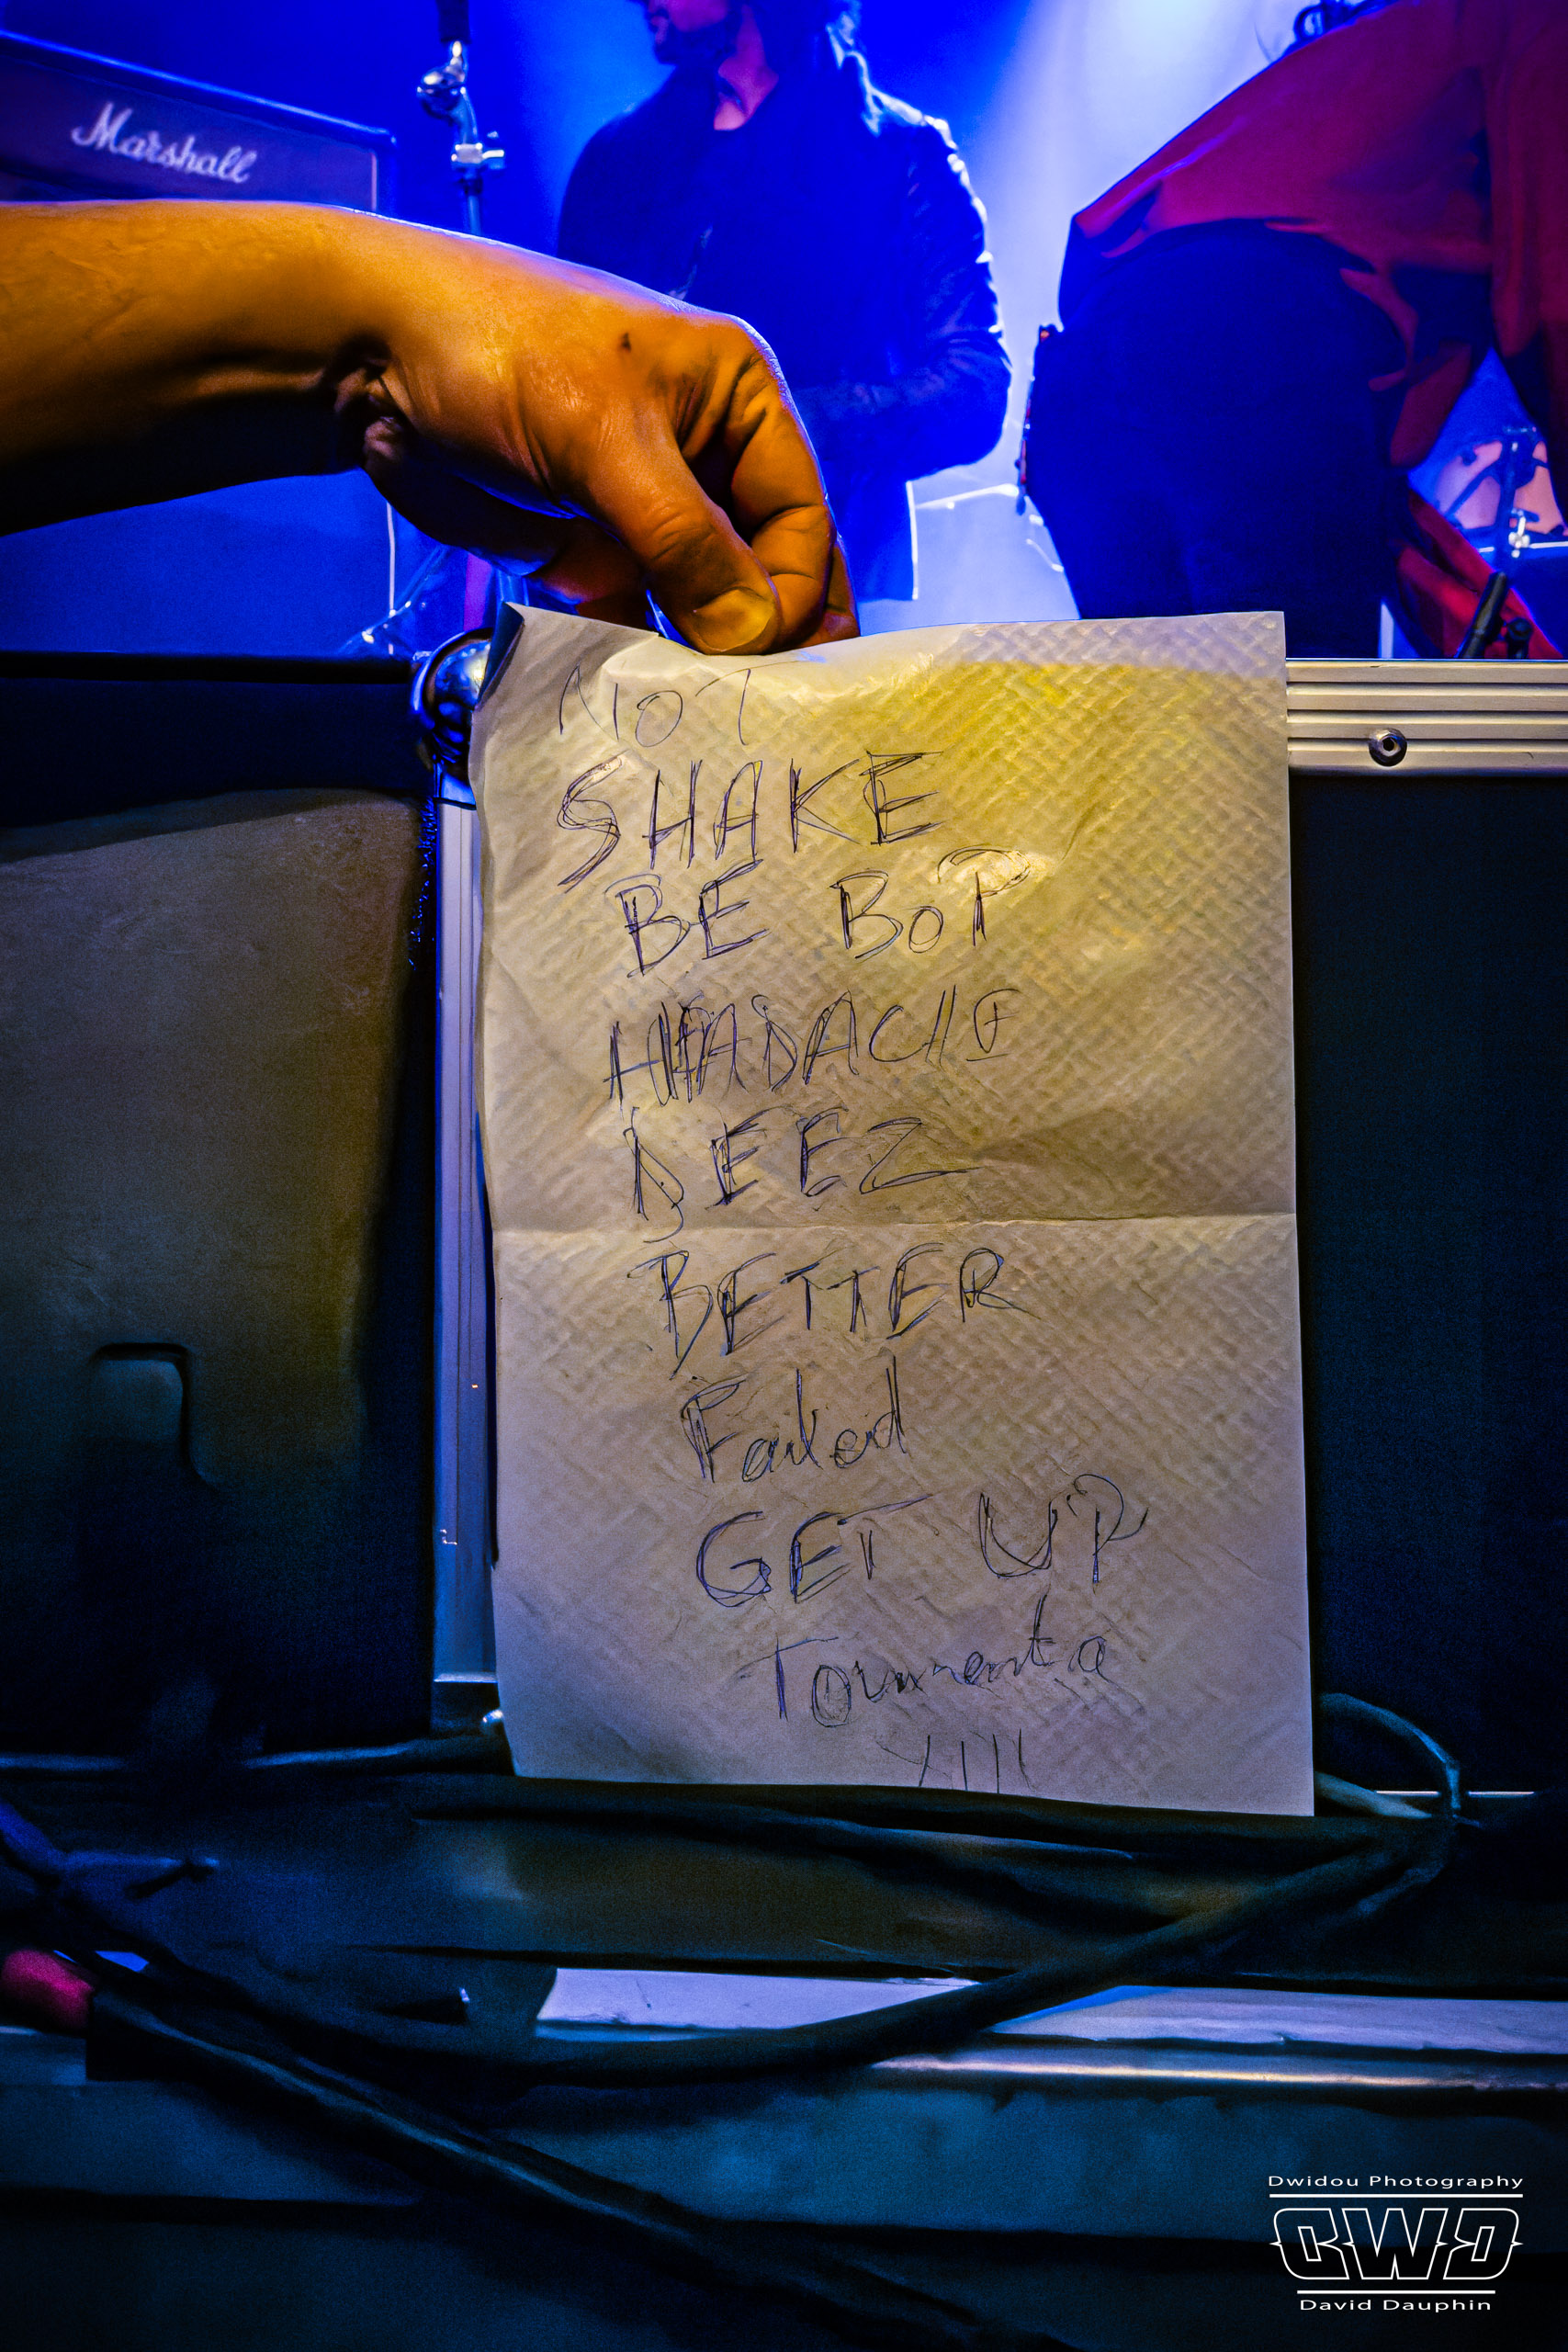 Marshall
NOT
SHAKE
BE BOP
HEADACHE
DEEZ
BETTER
Failed
GET UP
Tourmenta
Dwidou Photography
DWD
David Dauphin